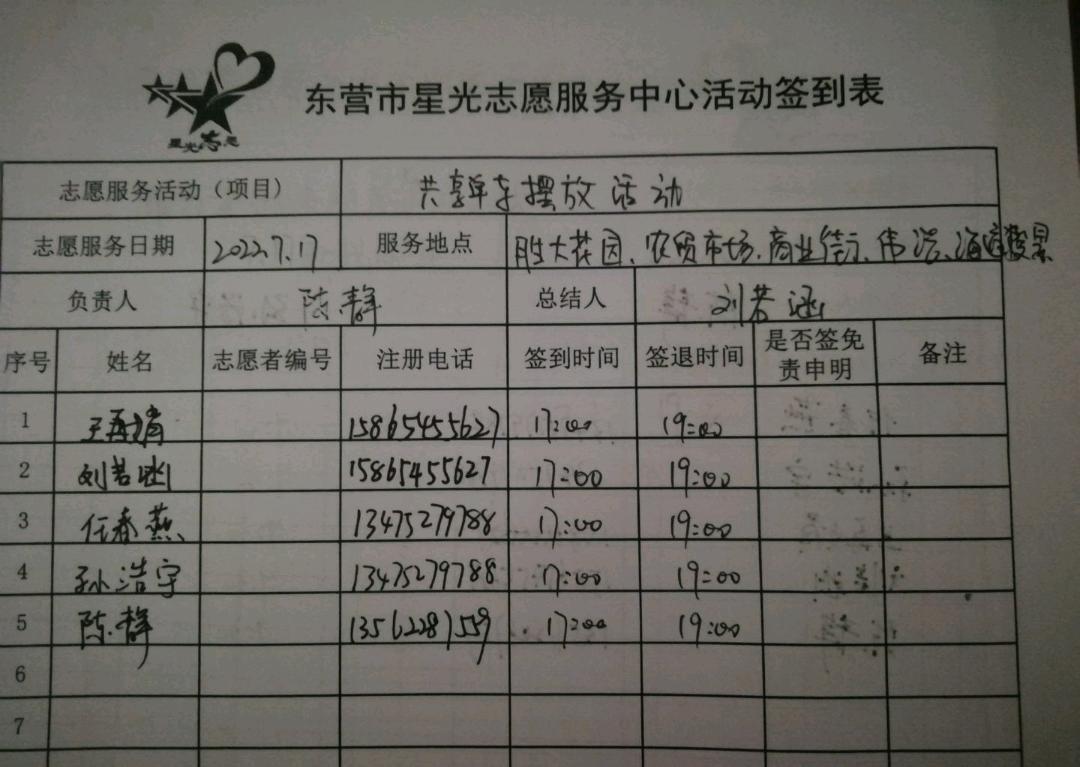 星光志愿
东营市星光志愿服务中心活动签到表
志愿服务活动（项目） 共享单车摆放活动
志愿服务日期 2022.7.17 服务地点 胜大花园、农贸市场、商业街、伟浩、海
负责人 陈静 总结人 刘若涵
序号 姓名 志愿者编号 注册电话 签到时间 签退时间 是否签免责申明 备注
1 王再 15865455627 17:00 19:00
2 刘若涵 15865455627 17:00 19:00
3 任春燕 13475279788 17:00 19:00
4 孙浩宇 13475279788 17:00 19:00
5 陈静 13562287559 17:00 19:00
6
7